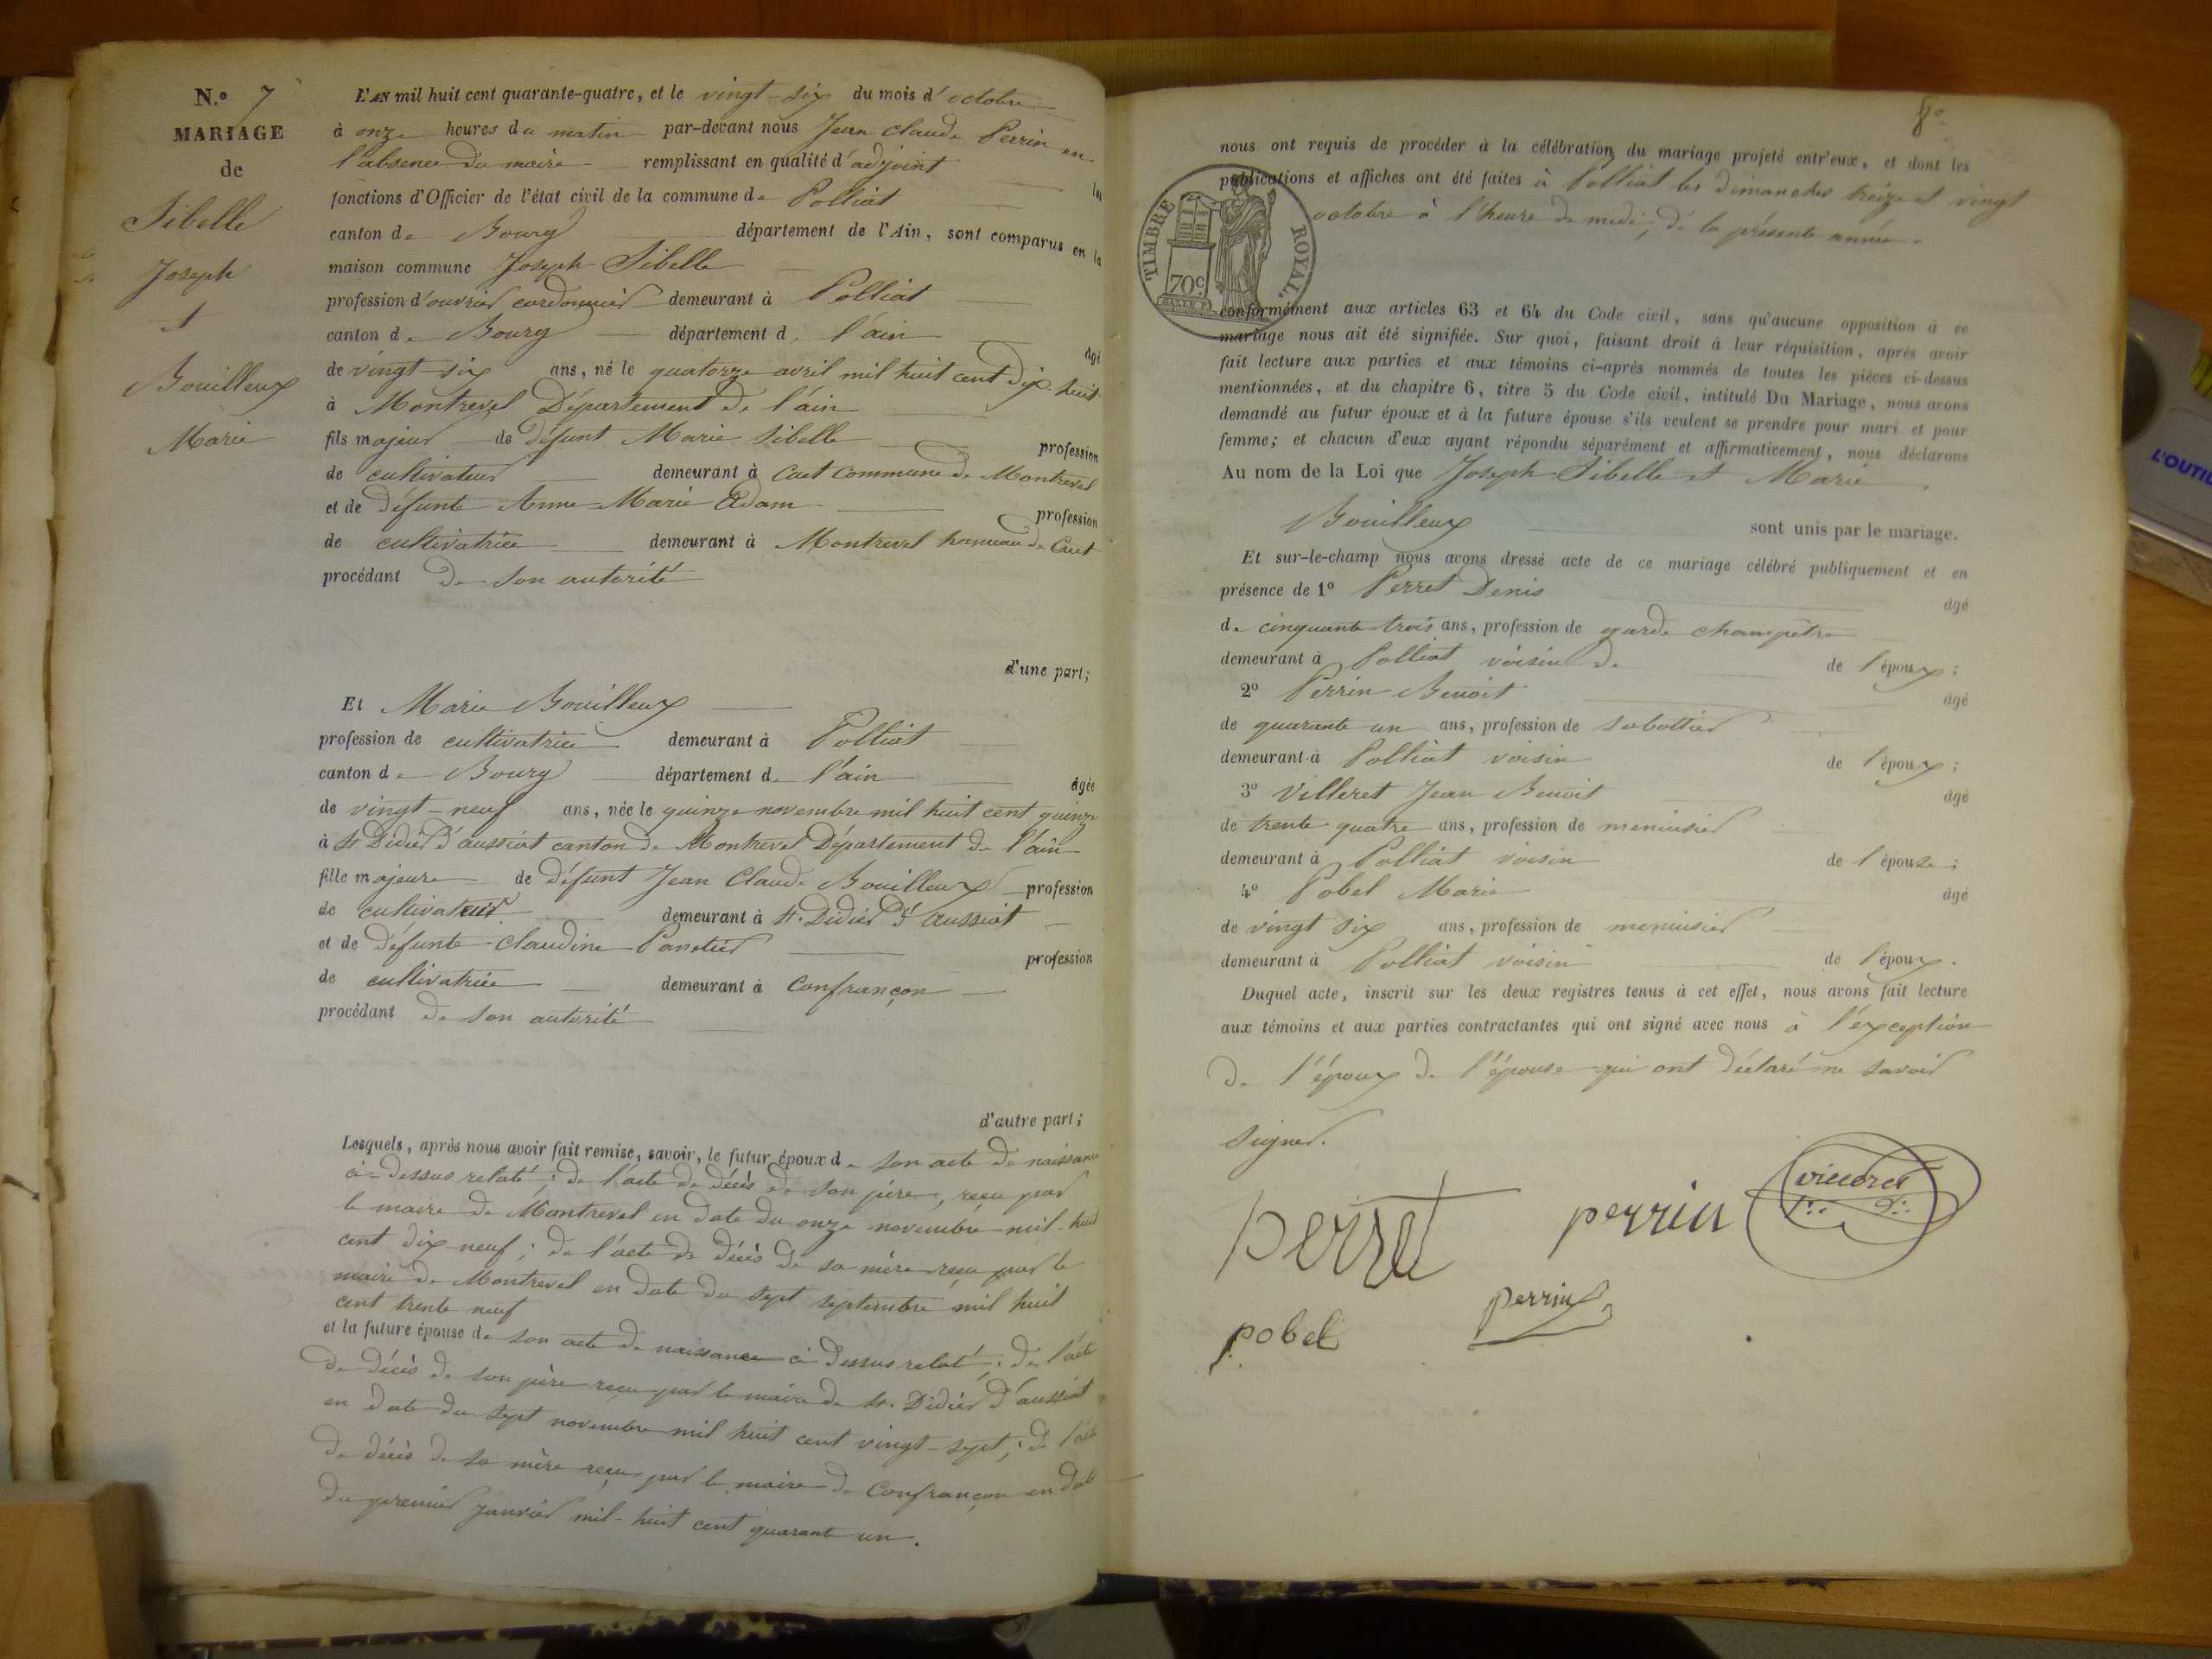 N.º 7
MARIAGE
de
Sibelle
Joseph
et
Bouilleux
Marie
L'AN mil huit cent quarante-quatre, et le vingt-six du mois d'octobre
à onze heures du matin par-devant nous Jean Claude Perrin en
l'absence du maire remplissant en qualité d'adjoint les
fonctions d'Officier de l'état civil de la commune de Polliat
canton de Bourg département de l'Ain, sont comparus en la
maison commune Joseph Sibelle
profession d'ouvrier cordonnier demeurant à Polliat
canton de Bourg département d. l'ain âgé
de vingt-six ans, né le quatorze avril mil huit cent dix huit
à Montrevel Département de l'ain
fils majeur de défunt Marie Sibelle profession
de cultivateur demeurant à Cuet commune de Montrevel
et de défunte Anne Marie Adam profession
de cultivatrice demeurant à Montrevel hameau de Cuet
procédant de son autorité
d'une part;
Et Marie Bouilleux
profession de cultivatrice demeurant à Polliat
canton de Bourg département d. l'ain âgée
de vingt-neuf ans, née le quinze novembre mil huit cent quinze
à St Didier d'aussiat canton de Montrevel Département de l'ain
fille majeure de défunt Jean Claude Bouilleux profession
de cultivateur demeurant à St. Didier d'aussiat
et de défunte Claudine Panetier profession
de cultivatrice demeurant à Confrançon
procédant de son autorité
d'autre part;
Lesquels, après nous avoir fait remise, savoir, le futur époux de son acte de naissance
ci-dessus relaté; de l'acte de décès de son père, reçu par
le maire de Montrevel en date du onze novembre mil-huit
cent dix neuf; de l'acte de décès de sa mère reçu par le
maire de Montrevel en date du sept septembre mil huit
cent trente neuf
et la future épouse de son acte de naissance ci dessus relaté; de l'acte
de décès de son père reçu par le maire de St. Didier d'aussiat
en date du sept novembre mil huit cent vingt-sept; de l'acte
de décès de sa mère reçu par le maire de Confrançon en date
du premier janvier mil-huit cent quarante un.
nous ont requis de procéder à la célébration du mariage projeté entr'eux, et dont les
publications et affiches ont été faites à Polliat les dimanches treize et vingt
octobre à l'heure de midi, de la présente année.
TIMBRE ROYAL.
70c.
conformément aux articles 63 et 64 du Code civil, sans qu'aucune opposition à ce
mariage nous ait été signifiée. Sur quoi, faisant droit à leur réquisition, après avoir
fait lecture aux parties et aux témoins ci-après nommés de toutes les pièces ci-dessus
mentionnées, et du chapitre 6, titre 5 du Code civil, intitulé Du Mariage, nous avons
demandé au futur époux et à la future épouse s'ils veulent se prendre pour mari et pour
femme; et chacun d'eux ayant répondu séparément et affirmativement, nous déclarons
Au nom de la Loi que Joseph Sibelle et Marie
Bouilleux sont unis par le mariage.
Et sur-le-champ nous avons dressé acte de ce mariage célébré publiquement et en
présence de 1º Perret Denis âgé
de cinquante trois ans, profession de garde champêtre
demeurant à Polliat voisin de de l'époux;
2º Perrin Benoit âgé
de quarante un ans, profession de sabottier
demeurant à Polliat voisin de l'époux;
3º Villeret Jean Benoit âgé
de trente quatre ans, profession de menuisier
demeurant à Polliat voisin de l'épouse;
4º Pobel Marie âgé
de vingt six ans, profession de menuisier
demeurant à Polliat voisin de l'époux.
Duquel acte, inscrit sur les deux registres tenus à cet effet, nous avons fait lecture
aux témoins et aux parties contractantes qui ont signé avec nous à l'exception
de l'époux de l'épouse qui ont déclaré ne savoir
signer.
perret perrin
pobel perrin
L'OUTIL